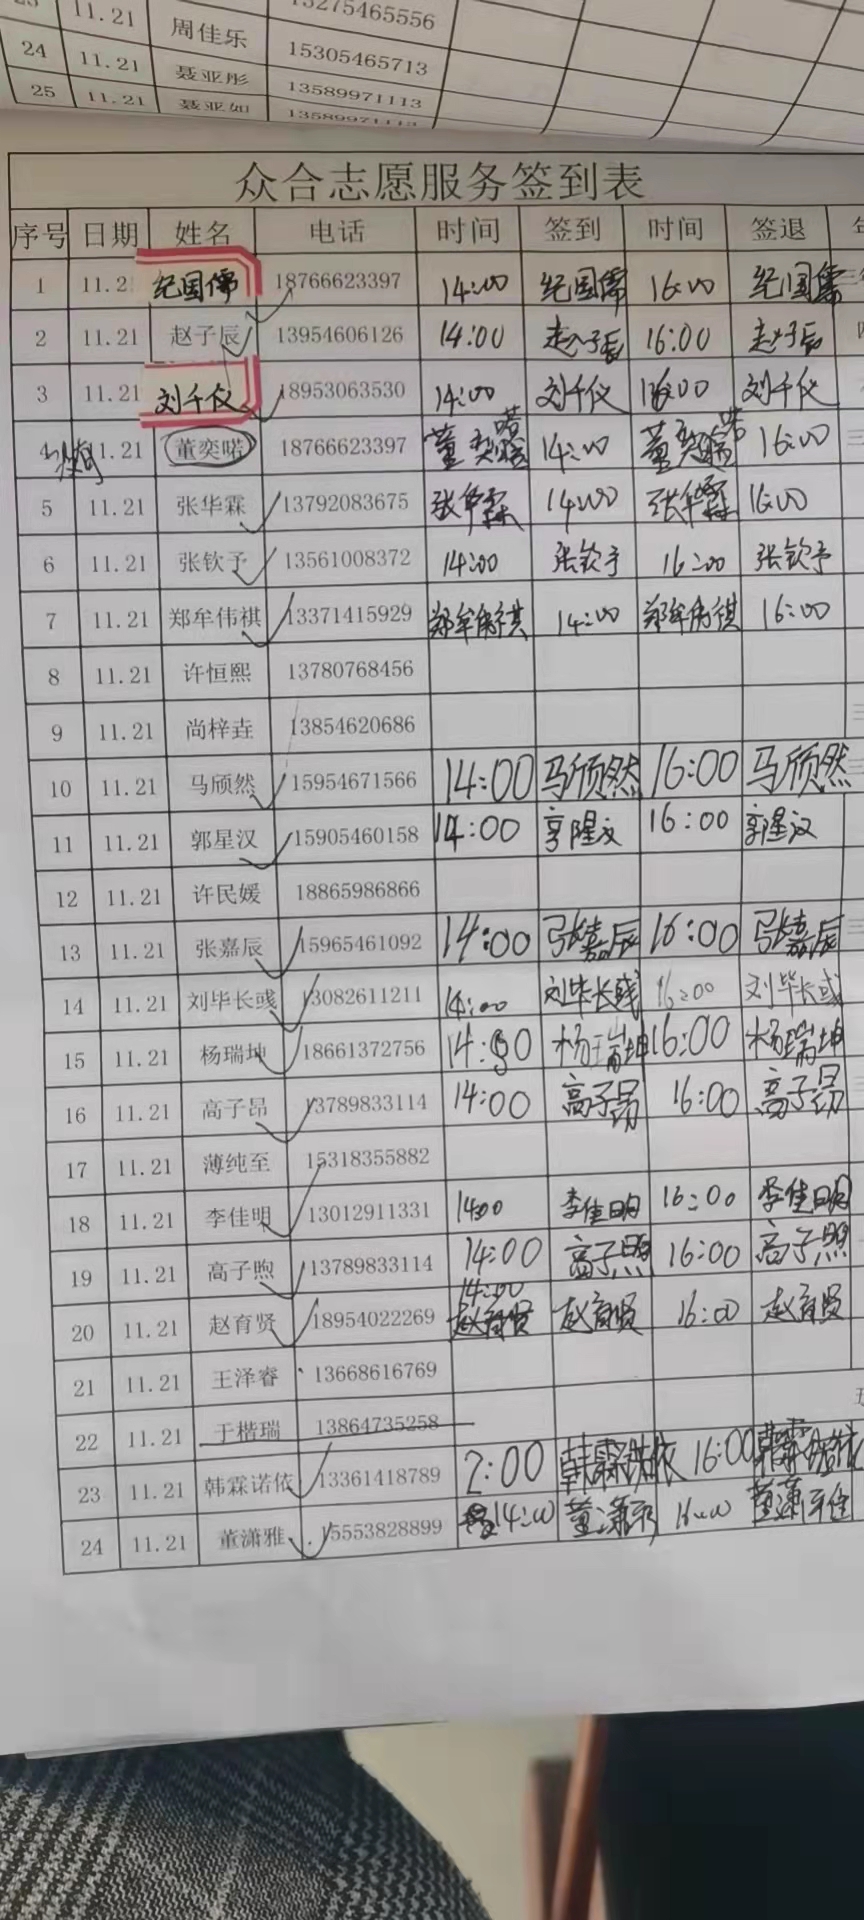 11.21 13275465556
24 11.21 周佳乐 15305465713
25 11.21 聂亚彤 13589971113
11.21 聂亚如 13589971113
众合志愿服务签到表
序号 日期 姓名 电话 时间 签到 时间 签退
1 11.2 纪国儒 18766623397 14:00 纪国儒 16:00 纪国儒
2 11.21 赵子辰 13954606126 14:00 赵子辰 16:00 赵子辰
3 11.21 刘千仪 18953063530 14:00 刘千仪 16:00 刘千仪
4 11.21 董奕喏 18766623397 董奕喏 14:00 董奕喏 16:00
5 11.21 张华霖 13792083675 张华霖 14:00 张华霖 16:00
6 11.21 张钦予 13561008372 14:00 张钦予 16:00 张钦予
7 11.21 郑牟伟祺 13371415929 郑牟伟祺 14:00 郑牟伟祺 16:00
8 11.21 许恒熙 13780768456
9 11.21 尚梓垚 13854620686
10 11.21 马颀然 15954671566 14:00 马颀然 16:00 马颀然
11 11.21 郭星汉 15905460158 14:00 郭星汉 16:00 郭星汉
12 11.21 许民媛 18865986866
13 11.21 张嘉辰 15965461092 14:00 张嘉辰 16:00 张嘉辰
14 11.21 刘毕长彧 13082611211 14:00 刘毕长彧 16:00 刘毕长彧
15 11.21 杨瑞坤 18661372756 14:00 杨瑞坤 16:00 杨瑞坤
16 11.21 高子昂 13789833114 14:00 高子昂 16:00 高子昂
17 11.21 薄纯至 15318355882
18 11.21 李佳明 13012911331 14:00 李佳明 16:00 李佳明
19 11.21 高子煦 13789833114 14:00 高子煦 16:00 高子煦
20 11.21 赵育贤 18954022269 14:00 赵育贤 赵育贤 16:00 赵育贤
21 11.21 王泽睿 13668616769
22 11.21 于楷瑞 13864735258
23 11.21 韩霖诺依 13361418789 2:00 韩霖诺依 16:00 韩霖诺依
24 11.21 董潇雅 15553828899 14:00 董潇雅 16:00 董潇雅